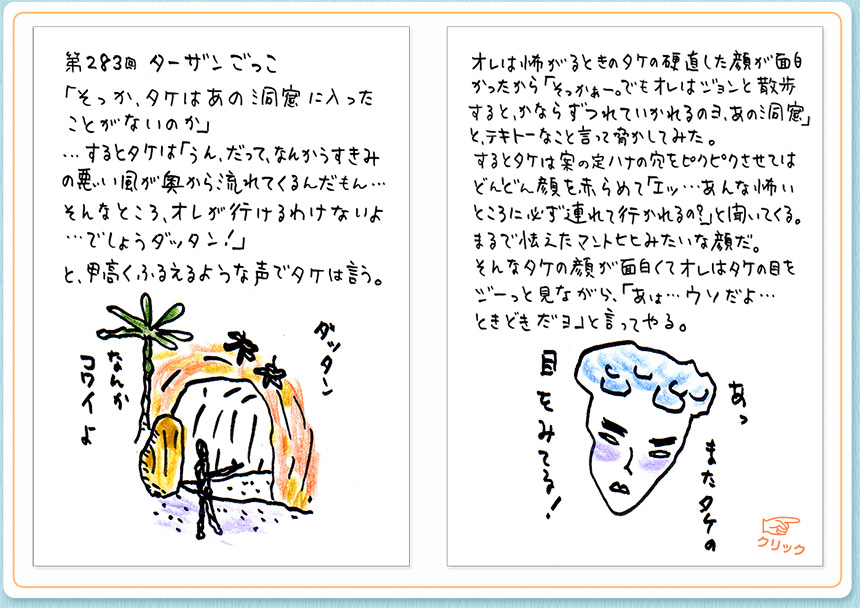 第283回 ターザンごっこ
「そっか、タケはあの洞窟に入った
ことがないのか」
…するとタケは「うん、だって、なんかうすきみ
の悪い風が奥から流れてくるんだもん…
そんなところ、オレが行けるわけないよ
…でしょうダッタン!」
と、甲高くふるえるような声でタケは言う。
ダッタン
なんか
コワイよ
オレは怖がるときのタケの硬直した顔が面白
かったから「そっかぁー。でもオレはジョンと散歩
すると、かならずつれていかれるのヨ、あの洞窟」
と、テキトーなこと言って脅かしてみた。
するとタケは案の定ハナの穴をピクピクさせては
どんどん顔を赤らめて「エッ…あんな怖い
ところに必ず連れて行かれるの?」と聞いてくる。
まるで怯えたマントヒヒみたいな顔だ。
そんなタケの顔が面白くてオレはタケの目を
ジーっと見ながら、「あぁ…ウソだよ…
ときどきだヨ」と言ってやる。
あっ
またタケの
目をみてる!
クリック